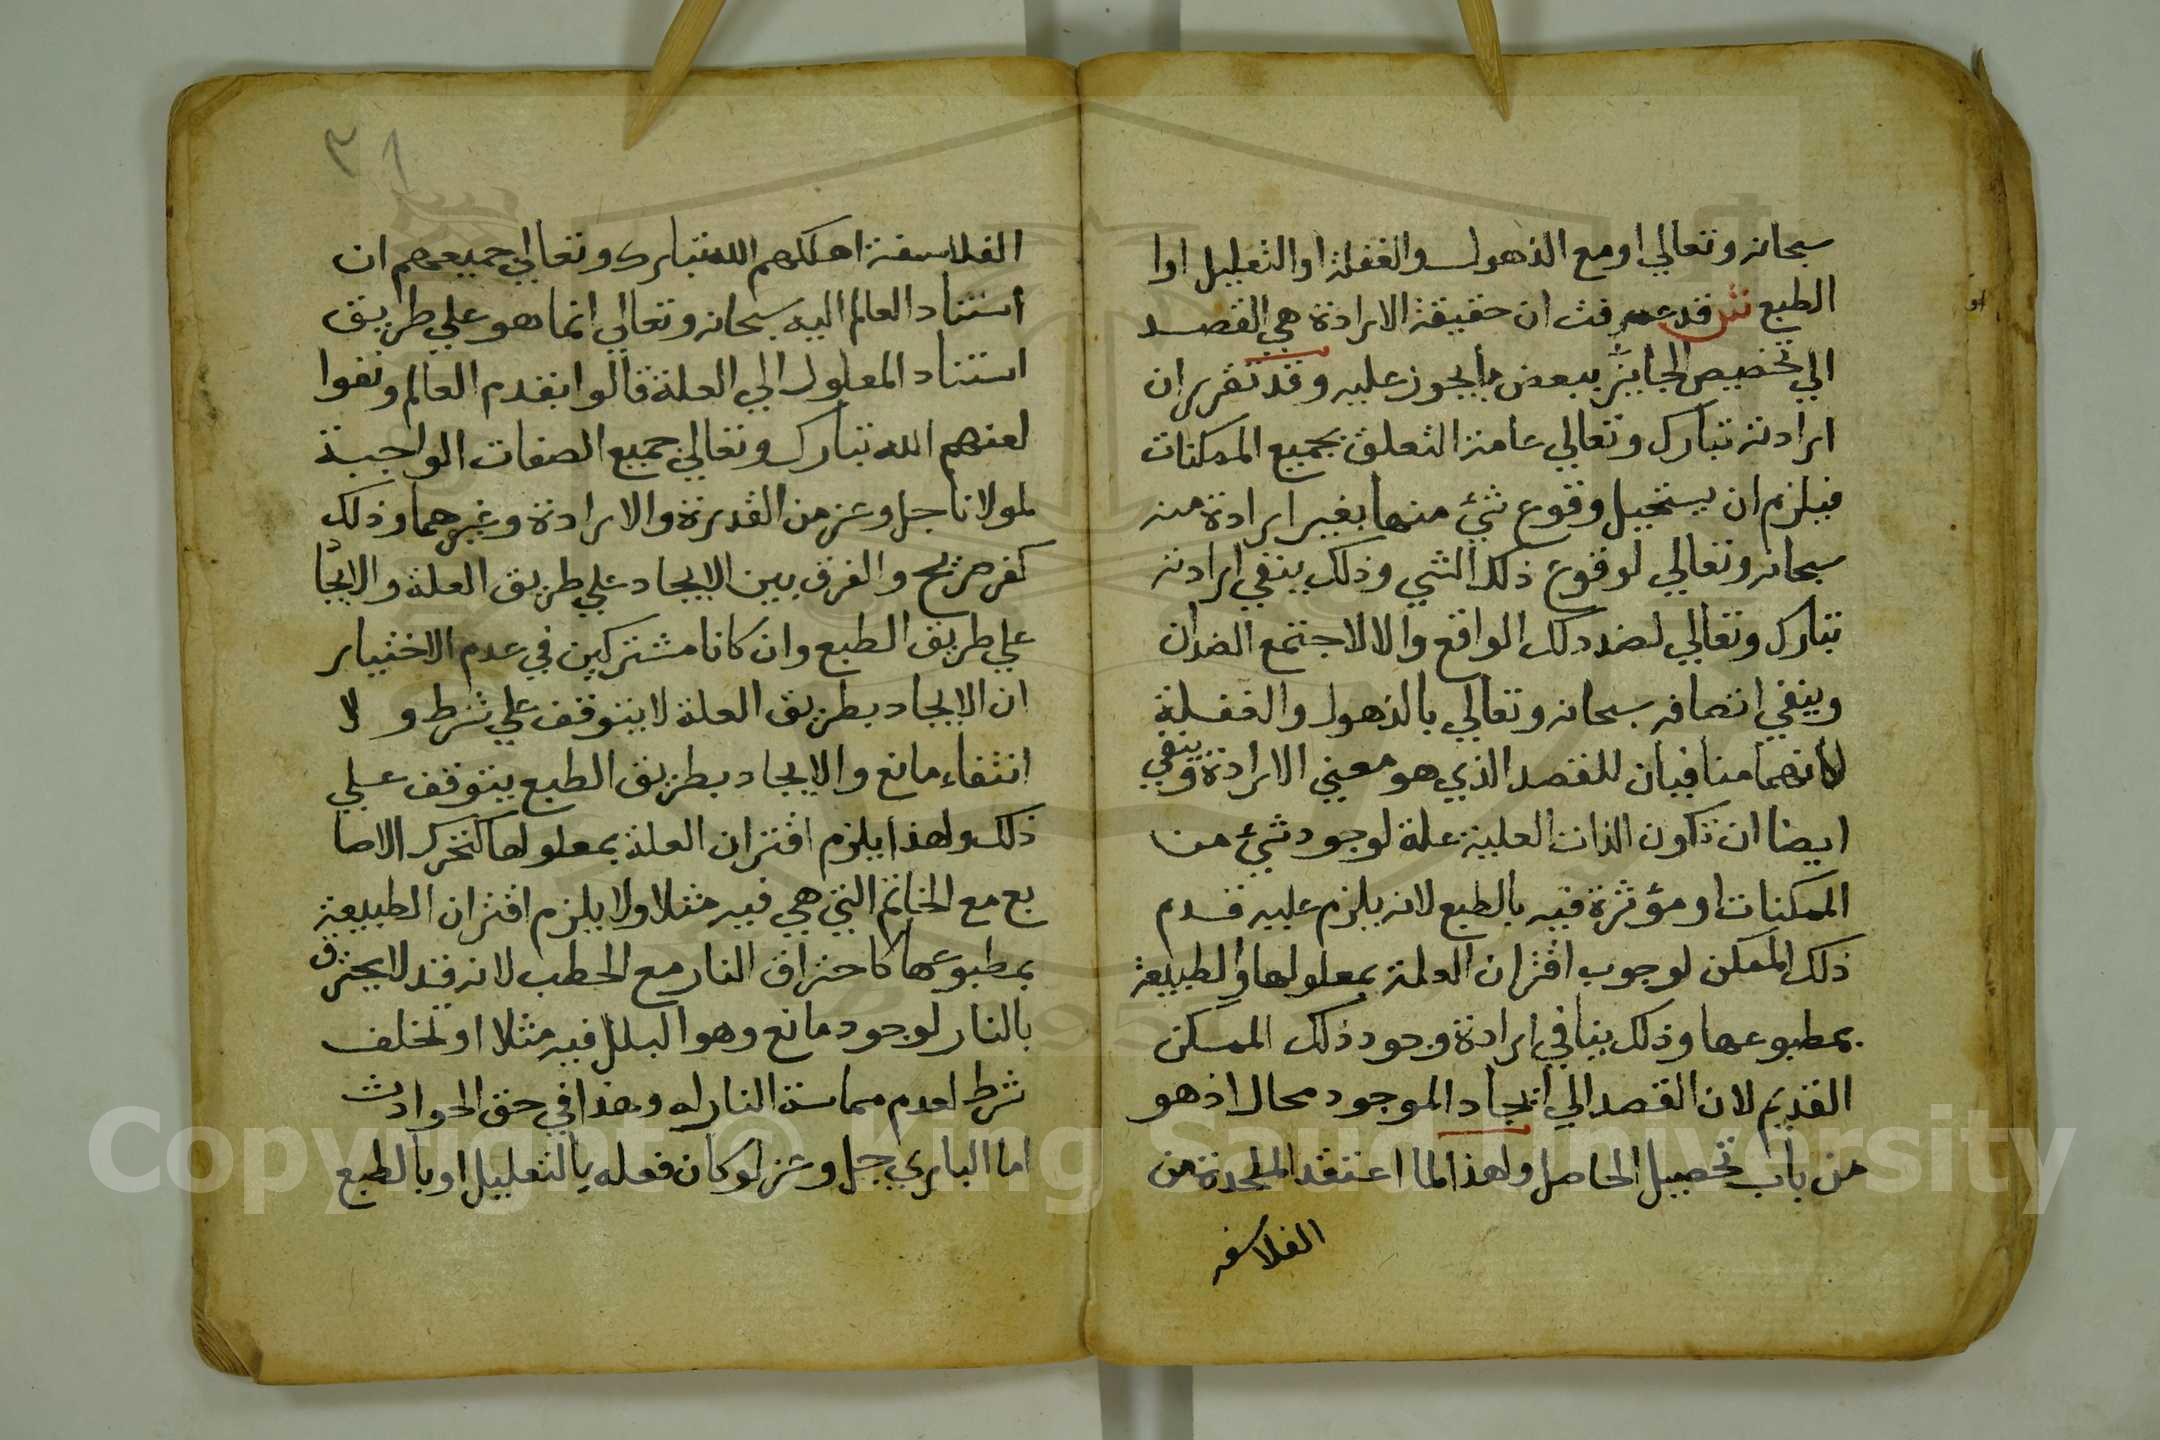 سبحانه وتعالي او مع الذهول والغفلة او التعليل اوا
الطبع ش قد عرفت ان حقيقة الارادة هي القصد
الي تخصيص الجايز ببعض ما يجوز عليه وقد تقرر ان
ارادته تبارك وتعالي عامة التعلق بجميع الممكنات
فيلزم ان يستحيل وقوع شيء منها بغير ارادة منه
سبحانه وتعالي لوقوع ذلك الشي وذلك ينفي ارادته
تبارك وتعالي لضد ذلك الواقع والا لاجتمع الضدان
وينفي اتصافه سبحانه وتعالي بالذهول والغفلة
لانهما منافيان للقصد الذي هو معني الارادة وينفي
ايضا ان تكون الذات العلية علة لوجود شيء من
الممكنات او مؤثرة فيه بالطبع لانه يلزم عليه قدم
ذلك الممكن لوجوب اقتران العلة بمعلولها والطبيعة
بمطبوعها وذلك ينافي ارادة وجود ذلك الممكن
القديم لان القصد الي ايجاد الموجود محال اذ هو
من باب تحصيل الحاصل ولهذا لما اعتقد الملحدة من
الفلاسفه
او
٣١
الفلاسفة اهلكهم الله تبارك وتعالي جميعهم ان
استناد العالم اليه سبحانه وتعالي انما هو علي طريق
استناد المعلول الي العلة قالوا بقدم العالم ونفوا
لعنهم الله تبارك وتعالي جميع الصفات الواجبة
لمولانا جل وعز من القدرة والارادة وغيرهما وذلك
كفر صريح والفرق بين الايجاد علي طريق العلة والايجا
علي طريق الطبع وان كانا مشتركين في عدم الاختيار
ان الايجاد بطريق العلة لا يتوقف علي شرط و لا
انتفاء مانع والايجاد بطريق الطبع يتوقف علي
ذلك ولهذا يلزم اقتران العلة بمعلولها كتحرك الاصا
بع مع الخاتم التي هي فيه مثلا ولا يلزم اقتران الطبيعة
بمطبوعها كاحتراق النار مع الحطب لانه قد لا يحترق
بالنار لوجود مانع وهو البلل فيه مثلا او تخلف
شرط لعدم مماسة النار له وهذا في حق الحوادث
اما الباري جل وعز لو كان فعله بالتعليل او بالطبع
Copyright © King Saud University